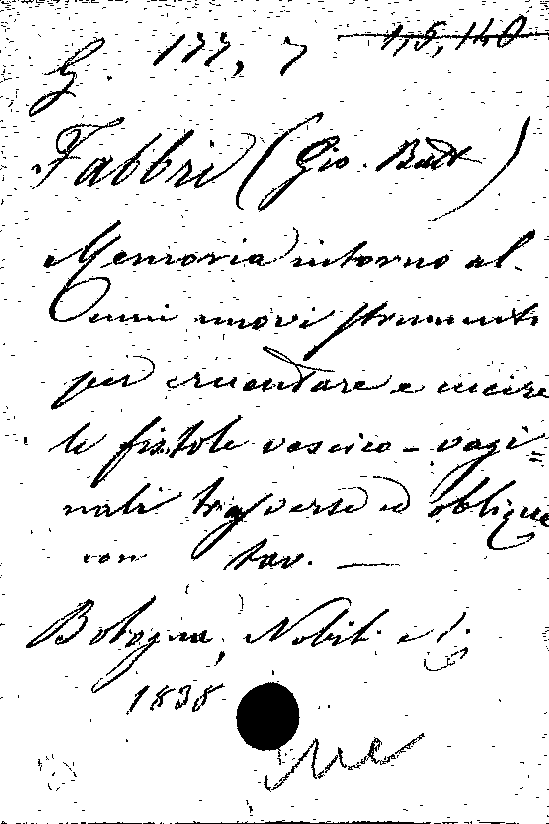 G. 177, 7 1,5,140
Fabbri (Gio. Batt)
Memoria intorno al-
cuni nuovi strumenti
per cruentare e cucire
le fistole vescico-vagi=
nali trasverse ed oblique
con tav. —
Bologna, Nobili e C.
1838